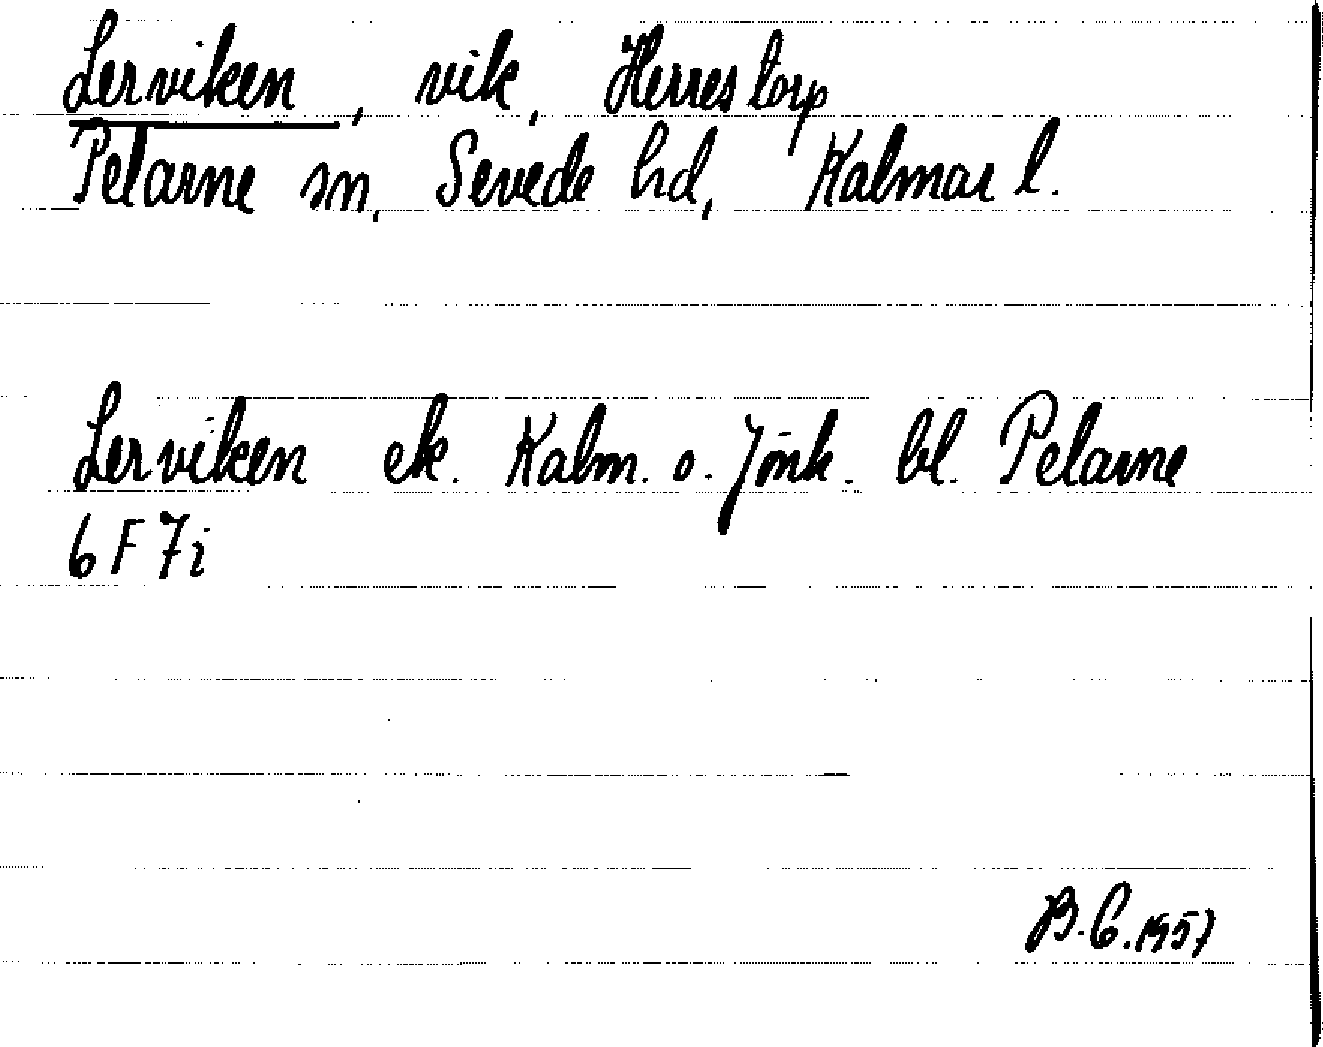 Lerviken, vik, Herrestorp
Pelarne sn, Sevede hd, Kalmar l.
Lerviken ek. Kalm. o. Jönk. bl. Pelarne
6 F 7i
B.C. 1957